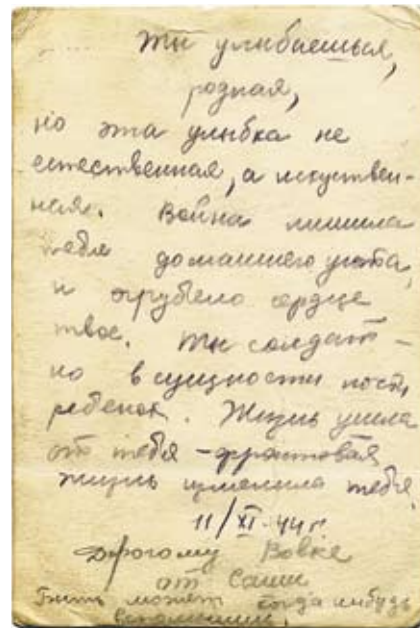 Ты улыбаешься,
родная,
но эта улыбка не
естественная, а искуствен-
ная. Война лишила
тебя домашнего уюта,
и огрубело сердце
твое. Ты солдат -
но в сущности
ребенок. Жизнь ушла
от тебя - фронтовая
жизнь изменила тебя.
11/XI-44 г.
Дорогому Вовке
от Саши
Быть может когда нибудь
вспомнишь.